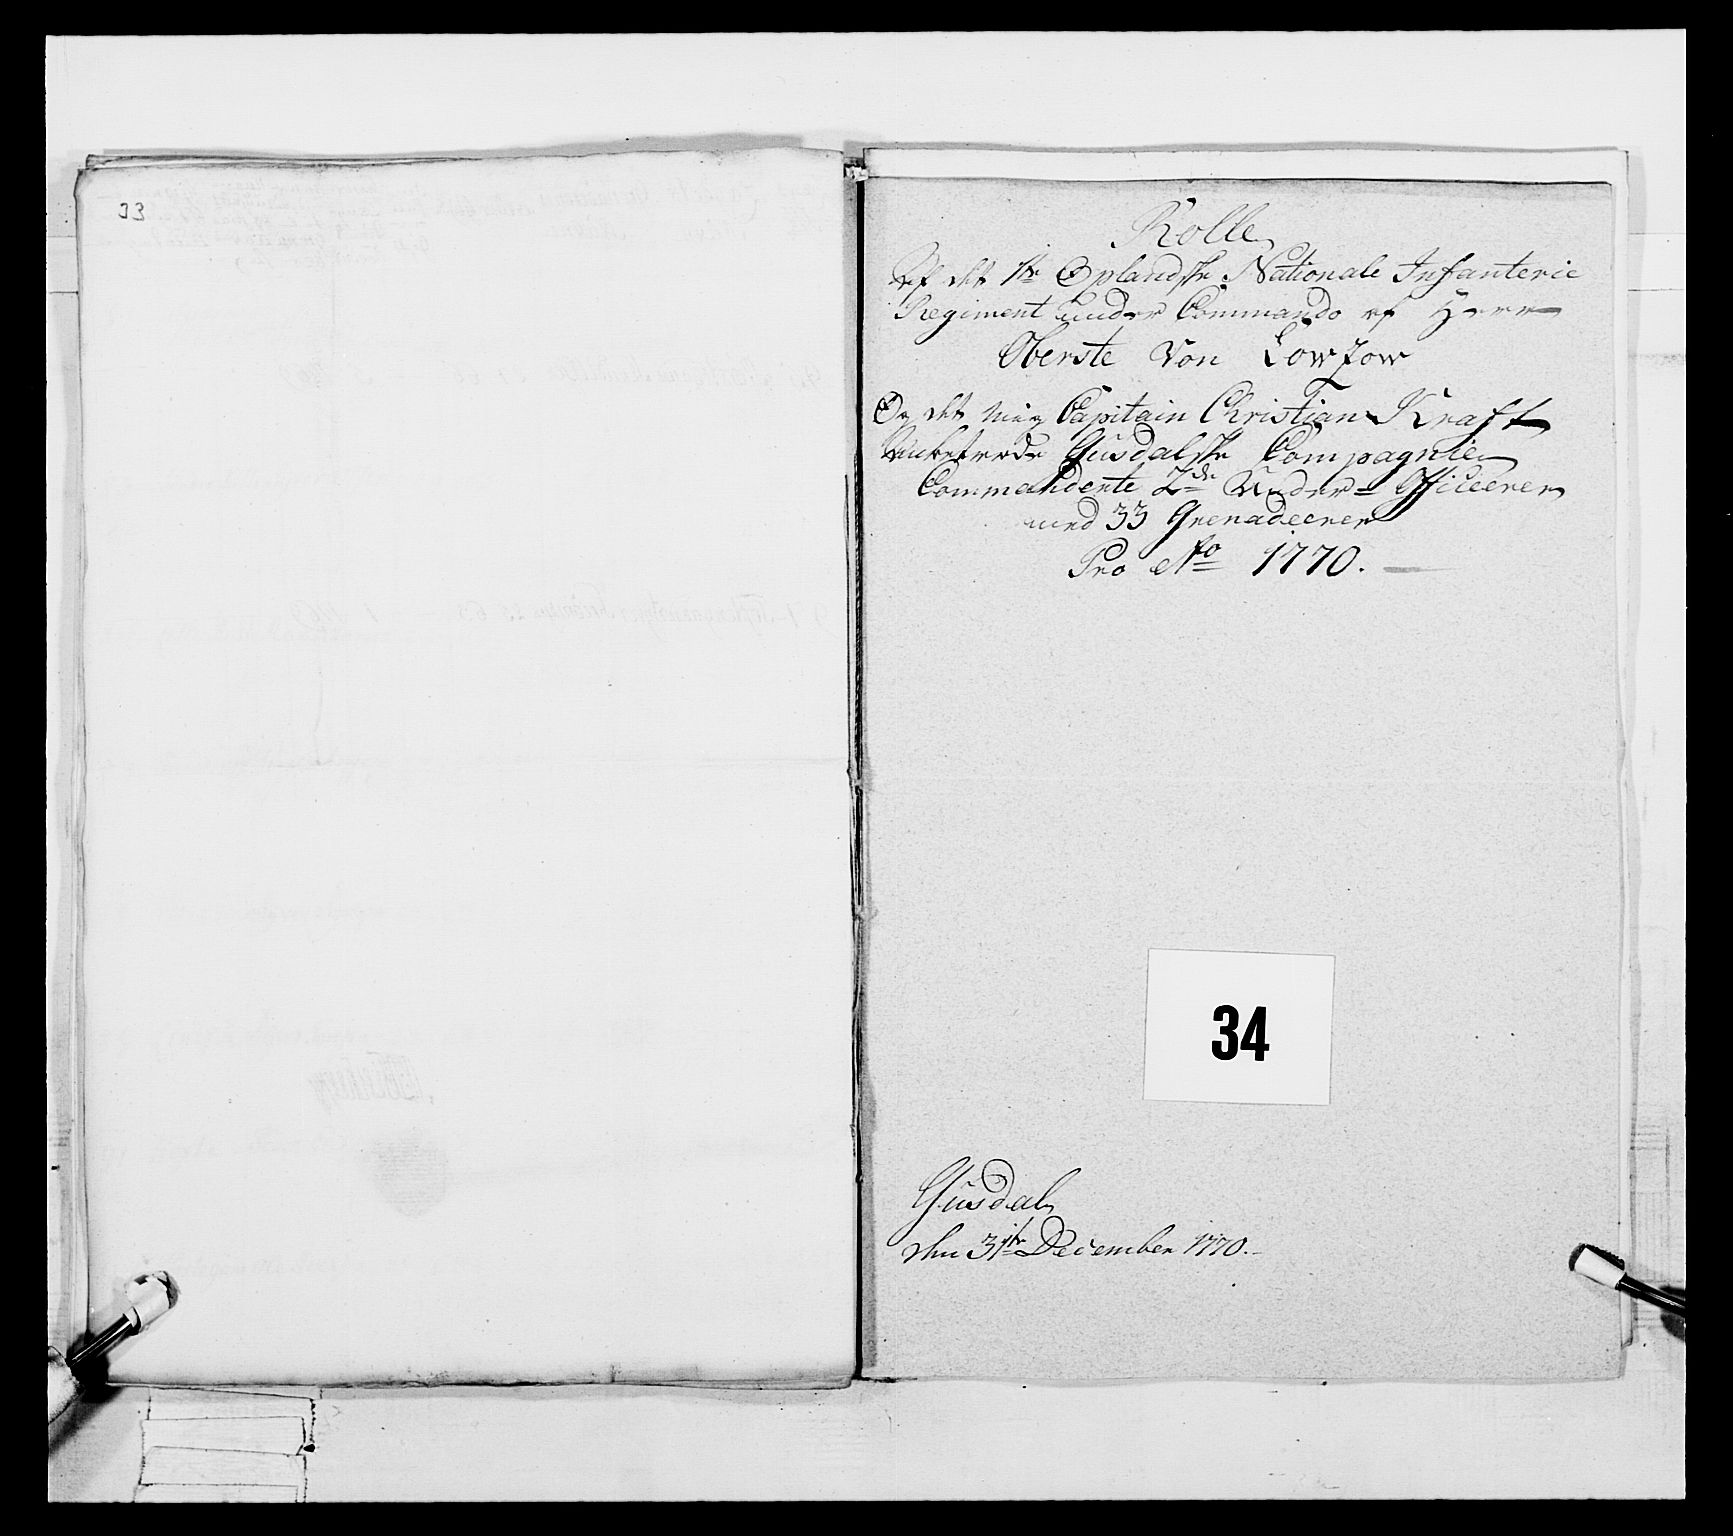 33
Rolle
Af det 1te Oplandske Nationale Infanterie
Regiment under Commando af Herr
Oberste Von Lowzow
Og det mig Capitain Christian Kraft
Gusdalske Compagnie
Commanderte 2de Under-Officeerer
med 33 Grenadeerer
Pro Ao 1770.
34
Gusdal
den 31te December 1770.